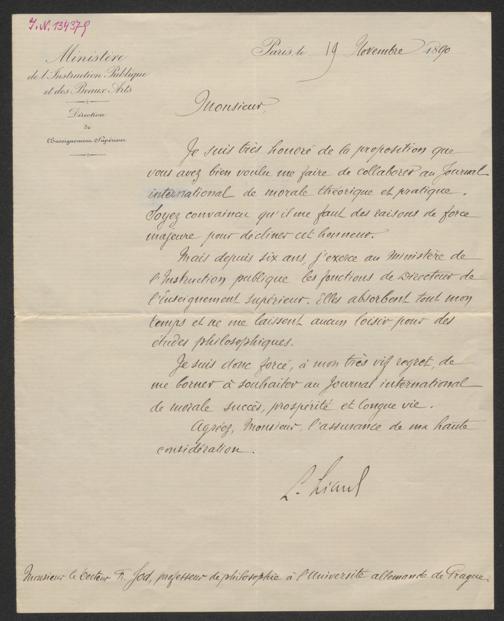 I.N. 134379
Ministère
de l'Instruction Publique
et des Beaux Arts
Direction
de
l'Enseignement Supérieur
Paris le 19 Novembre 1890
Monsieur,
Je suis très honoré de la proposition que
vous avez bien voulu me faire de collaborer au Journal
international de morale théorique et pratique.
Soyez convaincu qu'il me faut des raisons de force
majeure pour décliner cet honneur.
Mais depuis six ans, j'exerce au Ministère de
l'Instruction publique les fonctions de Directeur de
l'Enseignement supérieur. Elles absorbent tout mon
temps et ne me laissent aucun loisir pour des
études philosophiques.
Je suis donc forcé, à mon très vif regret, de
me borner à souhaiter au Journal international
de morale succès, prospérité et longue vie.
Agréez, Monsieur, l'assurance de ma haute
considération.
L. Liard
Monsieur le Docteur F. Jod, professeur de philosophie à l'Université allemande de Prague.